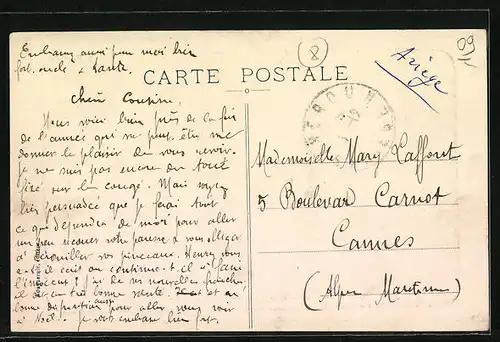 Embrassez aussi pour moi bien
fort oncle & tante
(8)
Ariège
09
CARTE POSTALE
Chère Cousine,
Nous voici bien près de la fin
de l'année qui va peut être me
donner le plaisir de vous revoir.
Je ne suis pas encore du tout
fixé sur le congé. Mais soyez
bien persuadée que je ferai tout
ce qui dépendra de moi pour aller
un peu secouer votre paresse & vous obliger
à vos pinceaux. Henry vous
a-t-il écrit ou continue-t-il à faire
J'ai de ses nouvelles
il est en très bonne santé et en
bonne disposition aussi pour aller vous voir
à Noël. Je vous embrasse bien fort.
Mademoiselle Mary Laffont
5 Boulevar Carnot
Cannes
(Alpes Maritimes)